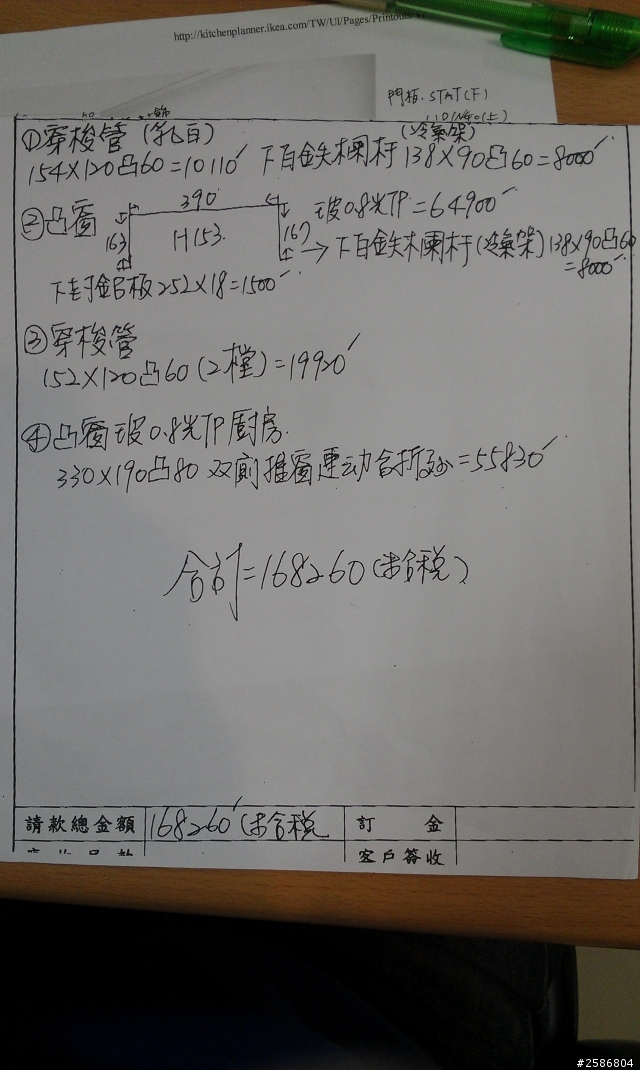 http://kitchenplanner.ikea.com/TW/UI/Pages/Printout
門板. STAT(下)
① 穿梭管 (乳白)
(冷氣架)
154×120凸60=10110 下白鉄欄杆 138×90凸60=8000
② 凸窗 390 玻0.8光TP=64900
163 H153. 167 → 下白鉄欄杆(冷氣架) 138×90凸60
=8000
下封鋁板 252×18=1500
③ 穿梭管
152×120凸60 (2樘)=19920
④ 凸窗玻0.8光TP廚房.
330×190凸80 双側推窗連动含折紗=55830
合計=168260 (未含税)
請款總金額 168260 (未含税 訂 金
客戶簽收
#2586804